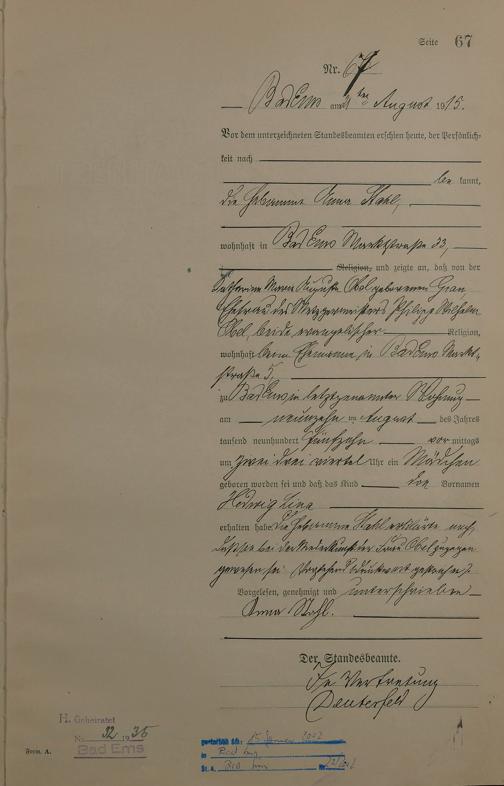 Seite 67
Nr. 67
Bad Ems am ten August 1915.
Vor dem unterzeichneten Standesbeamten erschien heute, der Persönlich-
keit nach
be kannt,
die Hebamme Anna Stahl,
wohnhaft in Bad Ems Marktstraße 33,
Religion, und zeigte an, daß von der
Katharina Maria Auguste Obel geborenen
Ehefrau des Metzgermeisters Philipp Wilhelm
Obel, beide evangelischer Religion,
wohnhaft beim Ehemanne in Bad Ems Markt-
straße 5,
zu Bad Ems in letztgenannter Wohnung
am neunzehn ten August des Jahres
tausend neunhundert fünfzehn vor mittags
um zwei drei viertel Uhr ein Mädchen
geboren worden sei und daß das Kind die Vornamen
Hedwig Lina
erhalten habe. Die Hebamme Stahl erklärte noch,
daß sie bei der Niederkunft der Frau Obel zugegen
gewesen sei.
Vorgelesen, genehmigt und unterschrieben
Anna Stahl.
Der Standesbeamte.
In Vertretung
H. Geheiratet
Nr. 32 1935
Bad Ems
Form. A.
gestorben am: 15 Januar
in Bad Ems
St. A. Bad Ems Nr.